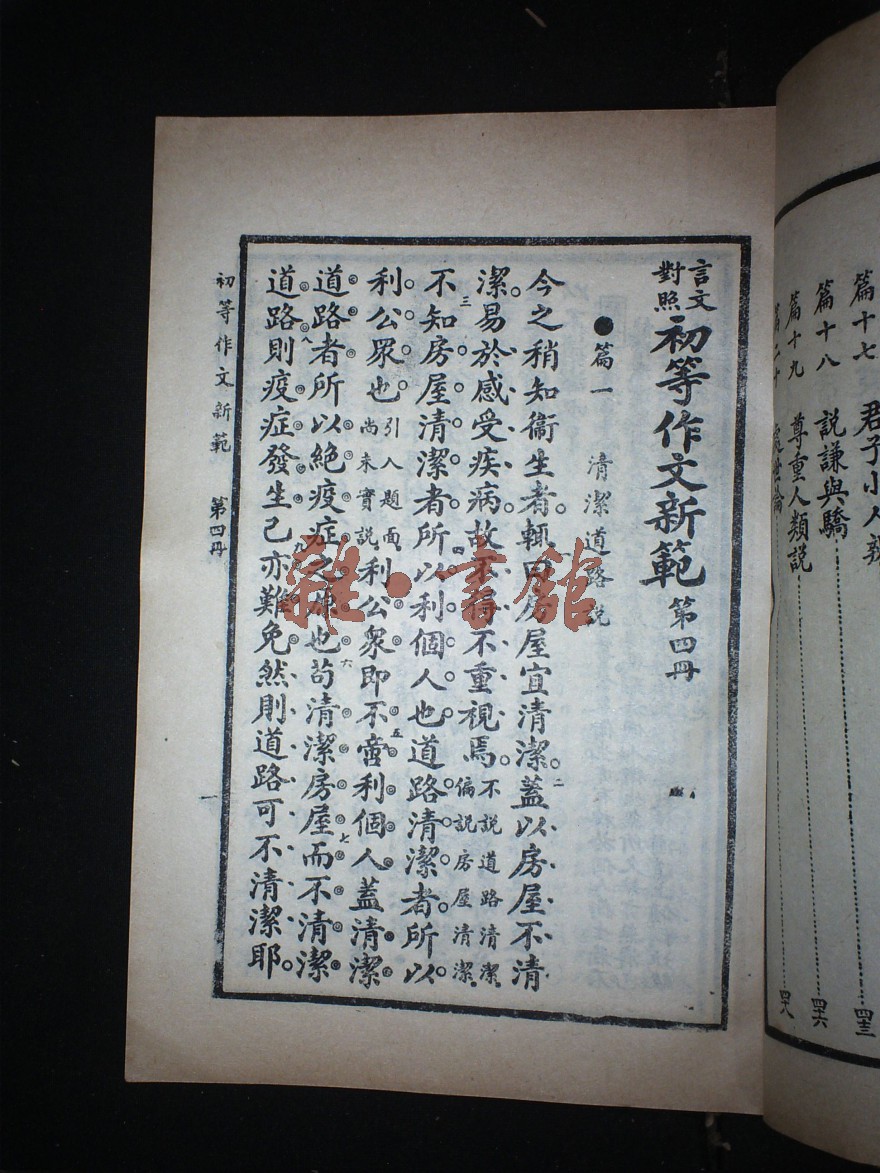 篇十七　君子小人辨　四三
篇十八　説謙與驕　四六
篇十九　尊重人類説　四八
篇二十　處世論
言文對照初等作文新範　第四冊
●篇一　清潔道路説
今之稍知衞生者。輒曰房屋宜清潔。二蓋以房屋不清
潔。易於感受疾病。故不得不重視焉。不説道路清潔。偏説房屋清潔。
三不知房屋清潔者。所以利個人也。四道路清潔者。所以
利公眾也。引入題面尚未實説利公眾即不啻利個人。五蓋清潔
道路者。所以絕疫症之源也。六苟清潔房屋。而不清潔七
道路。則疫症發生。八己亦難免。九然則道路可不清潔耶。
初等作文新範　第四冊　一
雜·書館